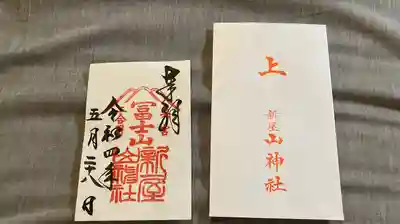 奉拝
富士山
新屋
山神社
令和四年
五月二十八日
上
新屋
山神社